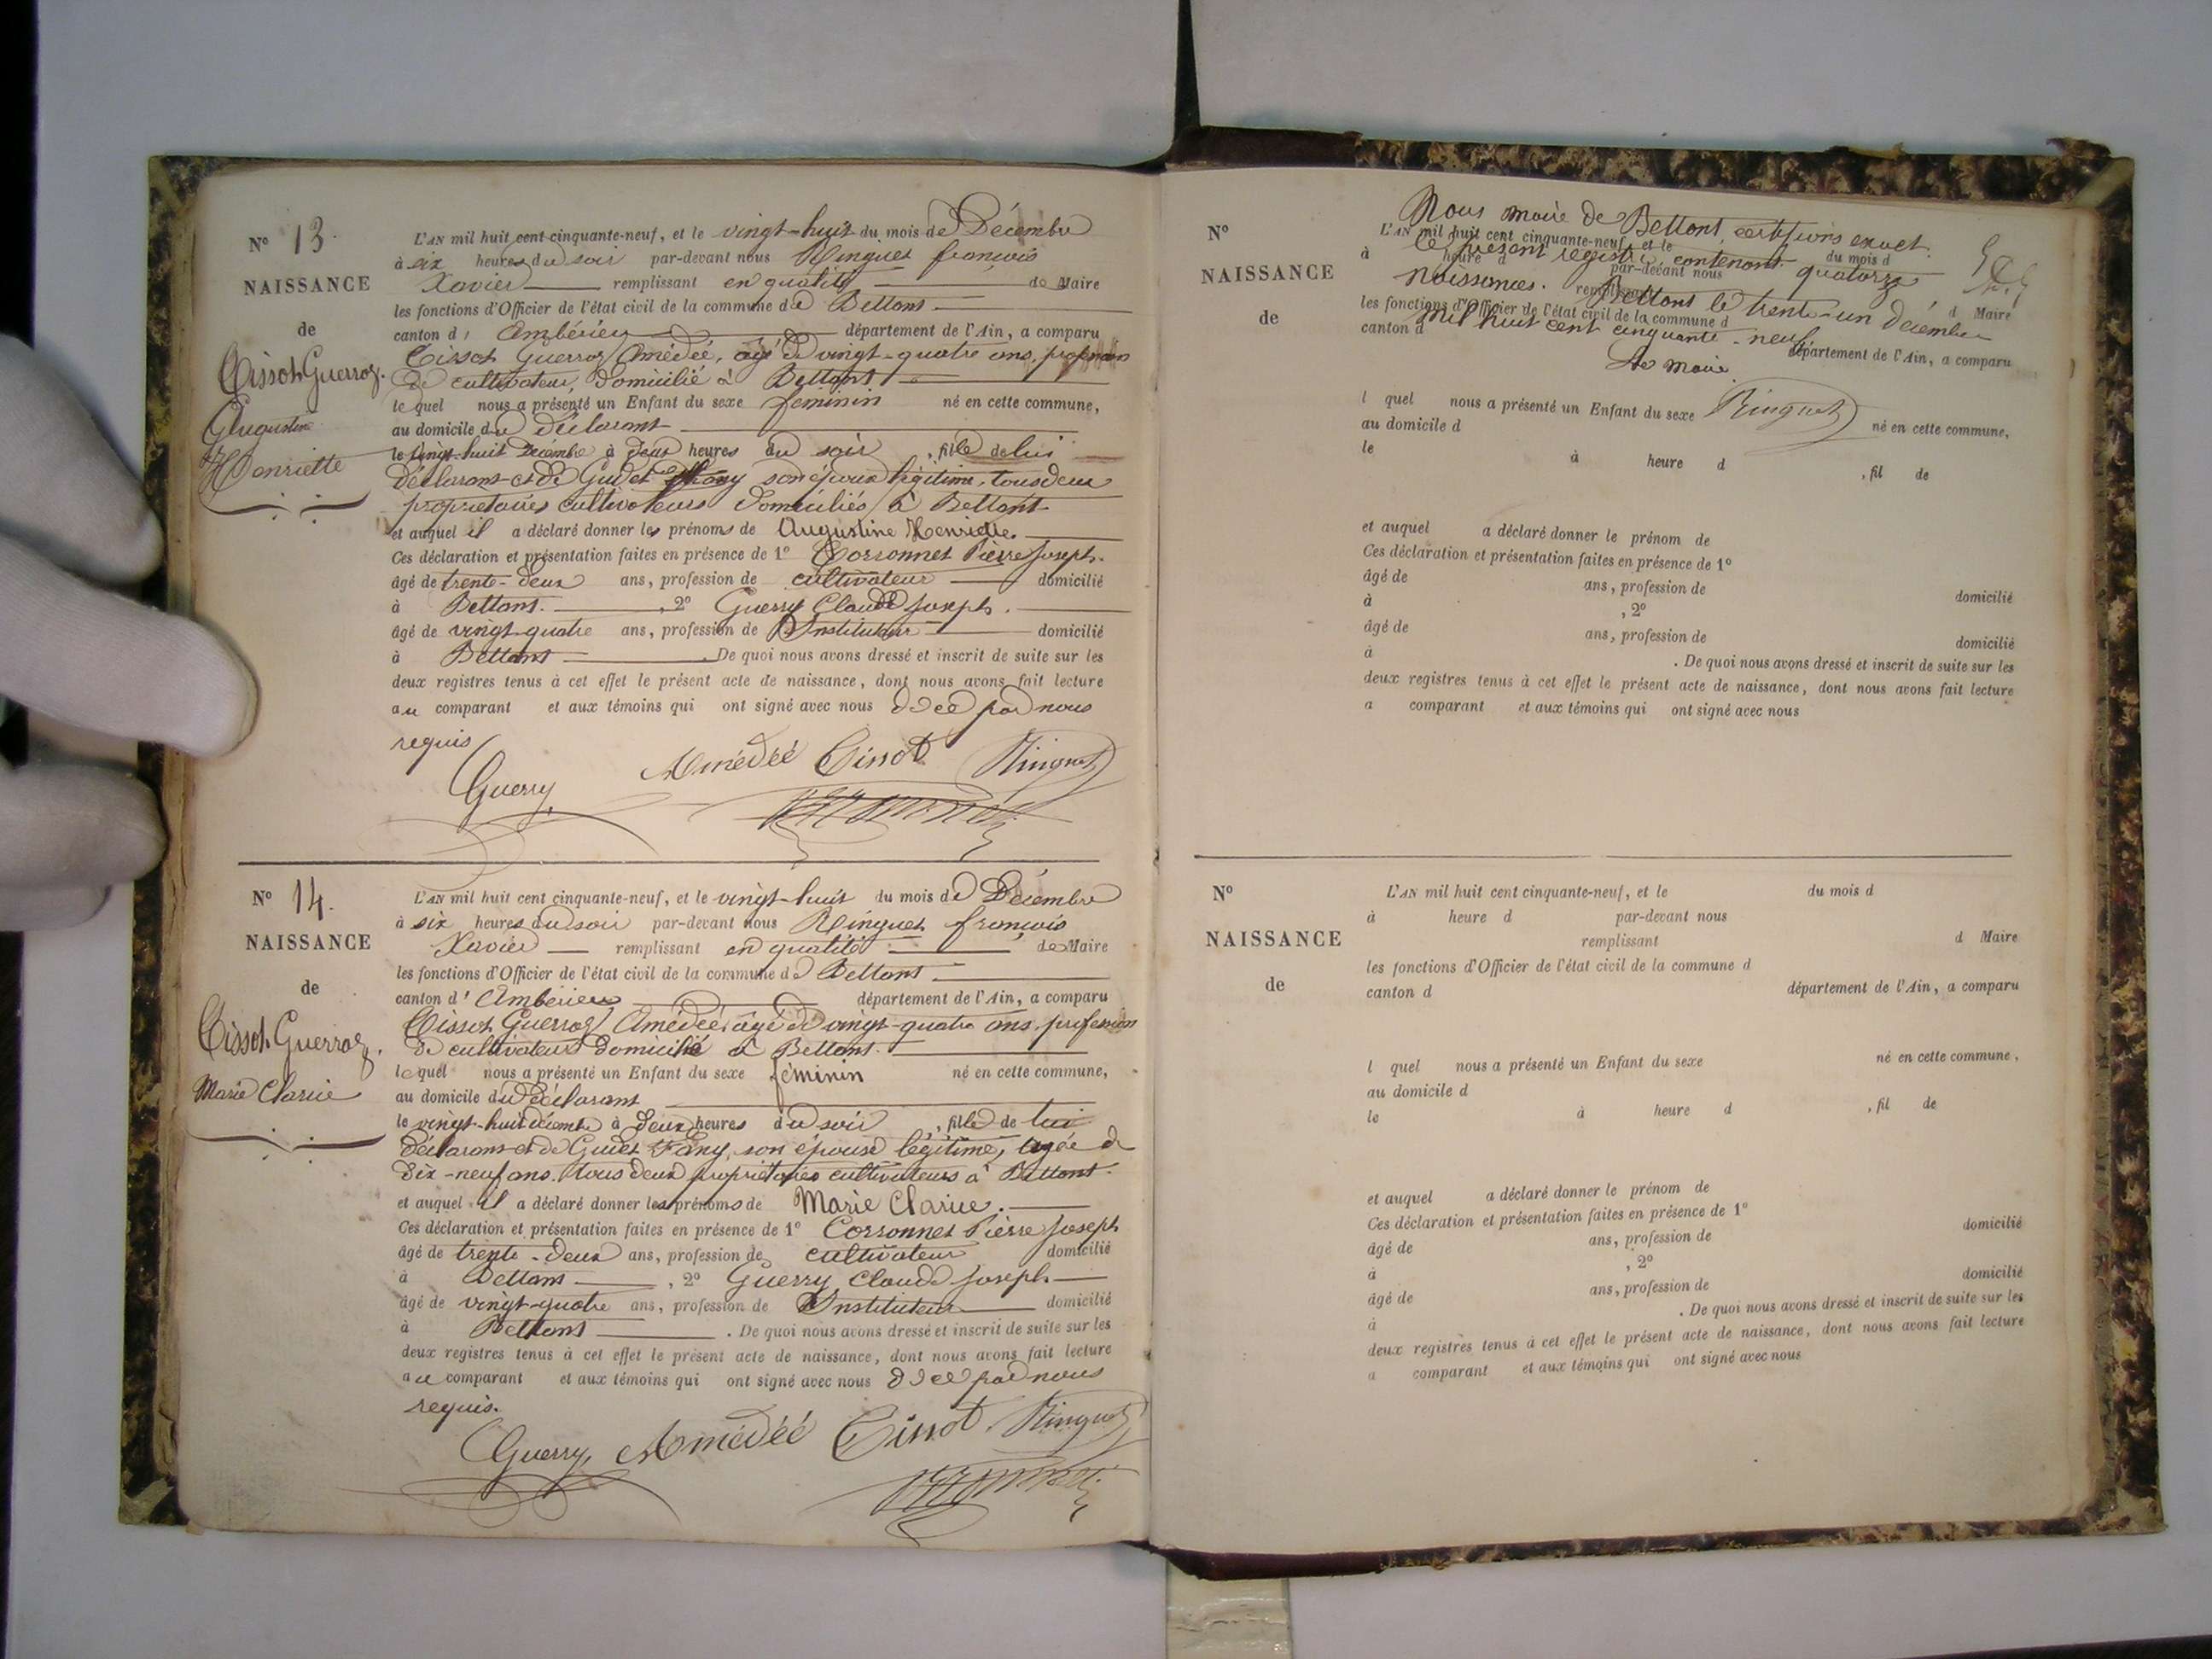 N° 13.
NAISSANCE
de
Tissot Guerraz.
Augustine
Henriette
L'AN mil huit cent cinquante-neuf, et le vingt-huit du mois de Décembre
à six heures du soir par-devant nous Ringuet françois
Xavier remplissant en qualité de Maire
les fonctions d'Officier de l'état civil de la commune de Bettant
canton d' Ambérieu département de l'Ain, a comparu
Tissot Guerraz Amédée, agé de vingt-quatre ans, profession
de cultivateur, domicilié à Bettant
lequel nous a présenté un Enfant du sexe feminin né en cette commune,
au domicile du déclarant
le vingt-huit Décembre à deux heures du soir, fille de lui
déclarant et de Gudet son épouse légitime, tous deux
proprietaires cultivateurs domiciliés à Bettant
et auquel il a déclaré donner les prénoms de Augustine Henriette.
Ces déclaration et présentation faites en présence de 1° Corronnet Pierre Joseph.
âgé de trente-deux ans, profession de cultivateur domicilié
à Bettant. , 2° Guerry Claude Joseph.
âgé de vingt-quatre ans, profession de Instituteur domicilié
à Bettant . De quoi nous avons dressé et inscrit de suite sur les
deux registres tenus à cet effet le présent acte de naissance, dont nous avons fait lecture
au comparant et aux témoins qui ont signé avec nous de ce par nous
requis
Guerry Amédée Tissot Ringuet
N° 14.
NAISSANCE
de
Tissot Guerraz.
Marie Clarice
L'AN mil huit cent cinquante-neuf, et le vingt-huit du mois de Décembre
à six heures du soir par-devant nous Ringuet françois
Xavier remplissant en qualité de Maire
les fonctions d'Officier de l'état civil de la commune de Bettant
canton d' Ambérieu département de l'Ain, a comparu
Tissot Guerraz Amédée, âgé de vingt-quatre ans, profession
de cultivateur domicilié à Bettant.
lequel nous a présenté un Enfant du sexe féminin né en cette commune,
au domicile du déclarant
le vingt-huit décembre à deux heures du soir, fille de lui
déclarant et de Gudet Fany, son épouse légitime, agée de
dix-neuf ans. tous deux proprietaires cultivateurs à Bettant.
et auquel il a déclaré donner les prénoms de Marie Clarice.
Ces déclaration et présentation faites en présence de 1° Corronnet Pierre Joseph
âgé de trente-deux ans, profession de cultivateur domicilié
à Bettant , 2° Guerry Claude Joseph
âgé de vingt-quatre ans, profession de Instituteur domicilié
à Bettant . De quoi nous avons dressé et inscrit de suite sur les
deux registres tenus à cet effet le présent acte de naissance, dont nous avons fait lecture
au comparant et aux témoins qui ont signé avec nous de ce par nous
requis.
Guerry, Amédée Tissot. Ringuet
Nous maire de Bettant, certifions exact
le présent registre contenant quatorze
naissances. Bettant le trente-un décembre
mil huit cent cinquante-neuf
Le maire
Ringuet
N°
NAISSANCE
de
L'AN mil huit cent cinquante-neuf, et le du mois d
à heure d par-devant nous
remplissant d Maire
les fonctions d'Officier de l'état civil de la commune d
canton d département de l'Ain, a comparu
l quel nous a présenté un Enfant du sexe né en cette commune,
au domicile d
le à heure d , fil de
et auquel a déclaré donner le prénom de
Ces déclaration et présentation faites en présence de 1°
âgé de ans, profession de domicilié
à , 2°
âgé de ans, profession de domicilié
à . De quoi nous avons dressé et inscrit de suite sur les
deux registres tenus à cet effet le présent acte de naissance, dont nous avons fait lecture
a comparant et aux témoins qui ont signé avec nous
N°
NAISSANCE
de
L'AN mil huit cent cinquante-neuf, et le du mois d
à heure d par-devant nous
remplissant d Maire
les fonctions d'Officier de l'état civil de la commune d
canton d département de l'Ain, a comparu
l quel nous a présenté un Enfant du sexe né en cette commune,
au domicile d
le à heure d , fil de
et auquel a déclaré donner le prénom de
Ces déclaration et présentation faites en présence de 1°
âgé de ans, profession de domicilié
à , 2°
âgé de ans, profession de domicilié
à . De quoi nous avons dressé et inscrit de suite sur les
deux registres tenus à cet effet le présent acte de naissance, dont nous avons fait lecture
a comparant et aux témoins qui ont signé avec nous